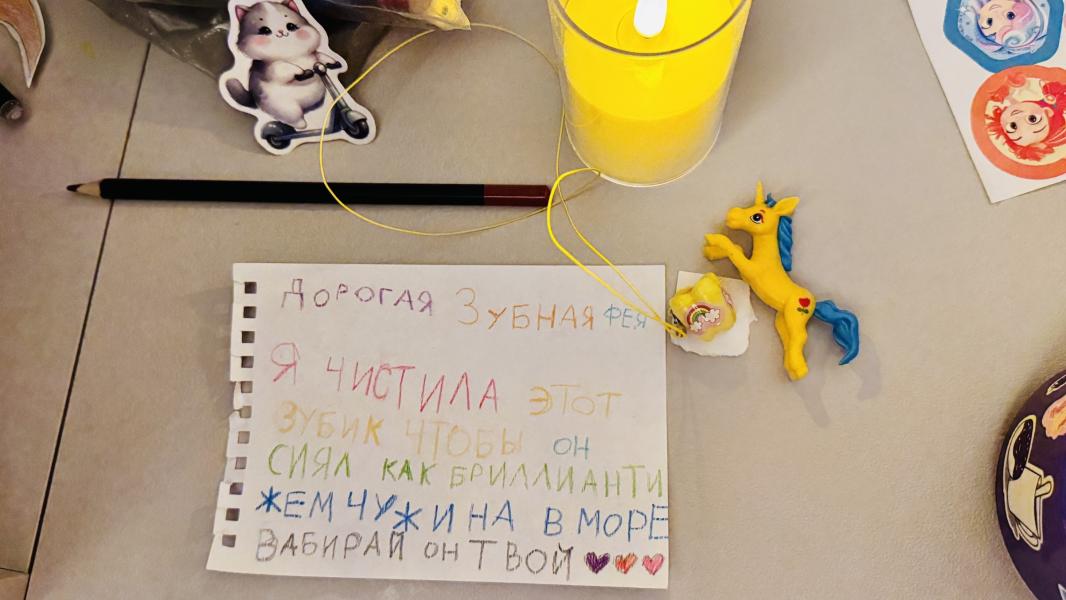 ДОРОГАЯ ЗУБНАЯ ФЕЯ
Я ЧИСТИЛА ЭТОТ
ЗУБИК ЧТОБЫ ОН
СИЯЛ КАК БРИЛЛИАНТИ
ЖЕМЧУЖИНА В МОРЕ
ЗАБИРАЙ ОН ТВОЙ